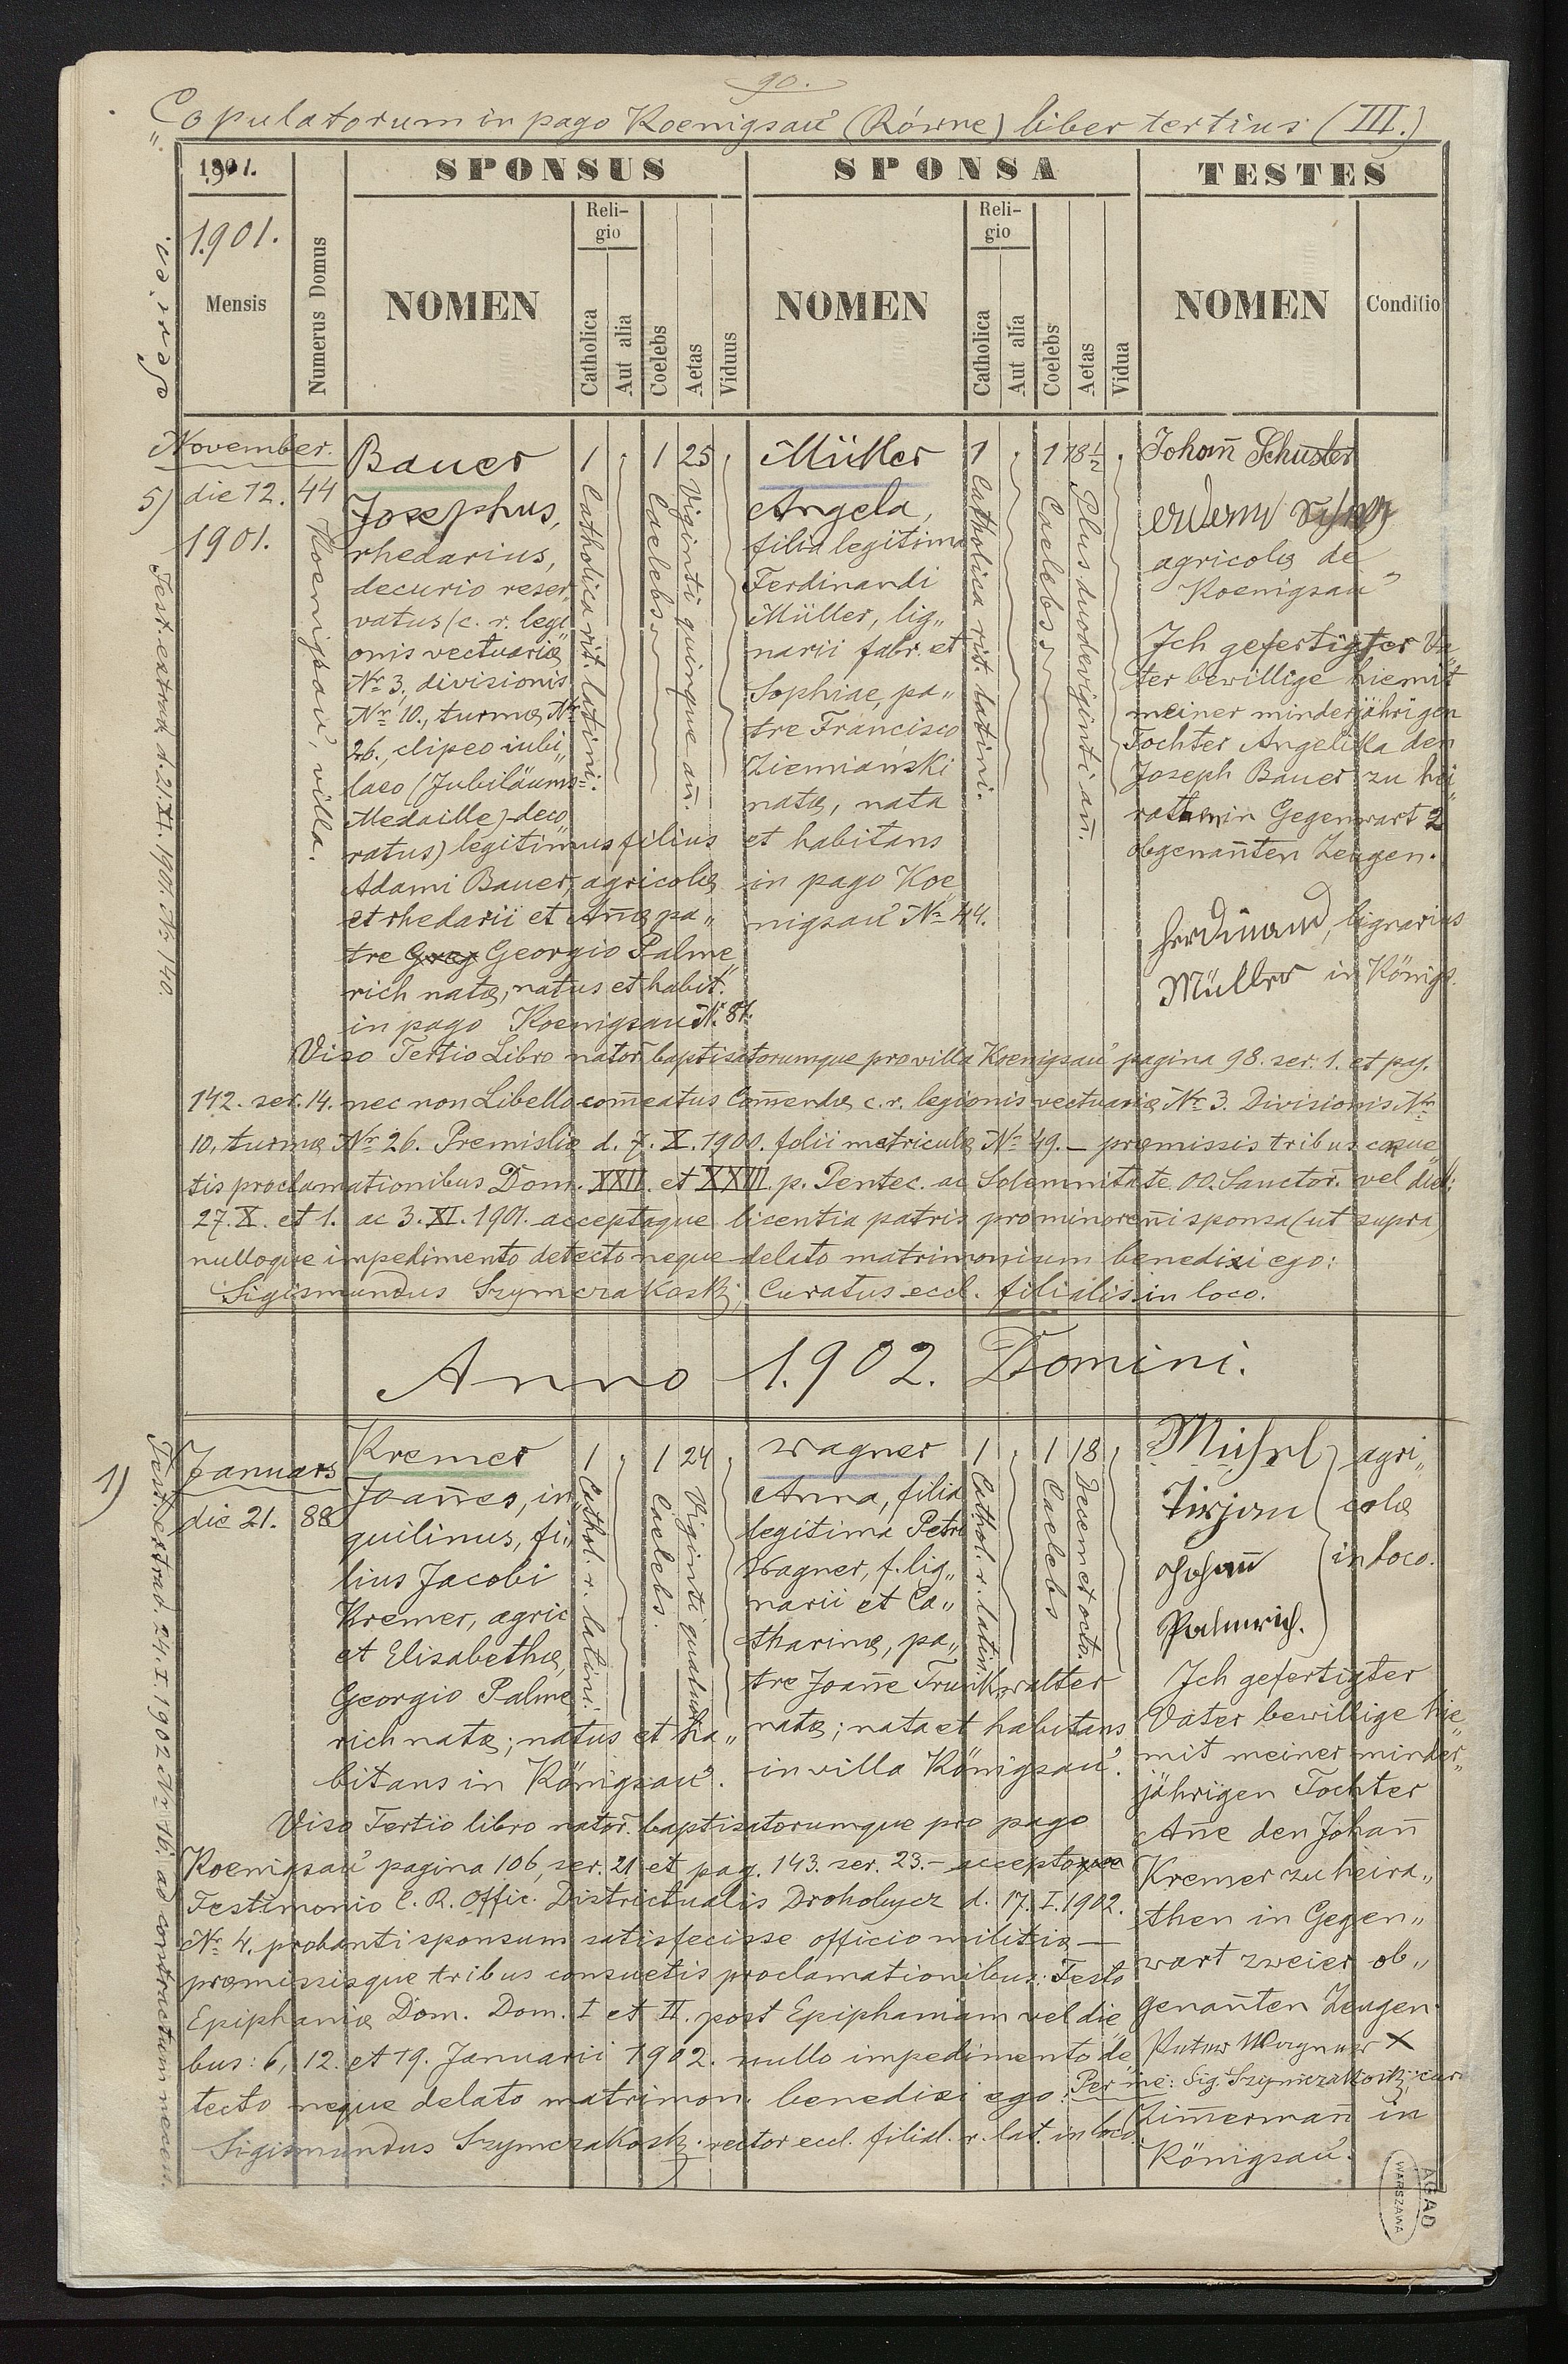 90.
"Copulatorum in pago Koenigsau (Równe) liber tertius (III.)
1901.
SPONSUS
SPONSA
TESTES
1.901.
Mensis
Numerus Domus
NOMEN
Religio
Catholica
Aut alia
Coelebs
Aetas
Viduus
NOMEN
Religio
Catholica
Aut alia
Coelebs
Aetas
Vidua
NOMEN
Conditio
Series
November.
5) die 12.
1901.
44
Koenigsau, villa.
Test. extrad. d. 21. XI. 1901. Nr 140.
Bauer
Josephus,
rhedarius,
decurio reser„
vatus (c. r. legi„
onis vectuariæ
Nr 3, divisionis
Nr. 10., turmæ Nr
26., clipeo iubi„
laeo (Jubiläums=
Medaille) deco„
ratus) legitimus filius
Adami Bauer, agricolæ
et rhedarii et Annæ pa„
tre Georgio Palme„
rich natæ, natus et habit.
in pago Koenigsau Nr. 81.
1
Catholica rit. latini.
1
Caelebs
25
Viginti quinque an̄.
Müller
Angela,
filia legitima
Ferdinandi
Müller, lig„
narii fabr. et
Sophiae, pa„
tre Francisco
Ziemiański
natæ, nata
et habitans
in pago Koe„
nigsau Nr 44.
1
Catholica rit. latini.
1
Caelebs
18½
Plus duodeviginti an̄.
Johan̄ Schuster
agricolæ de
Koenigsau
Ich gefertigter Va„
ter bewillige hiemit
meiner minderjährigen
Tochter Angelika den
Joseph Bauer zu hei„
rathen in Gegenwart 2
obgenan̄ten Zeugen.
Ferdinand, lignarius
Müller in Königs.
Viso Tertio Libro nator̄. baptisatorumque pro villa Koenigsau pagina 98. ser. 1. et pag.
142. ser. 14. nec non Libello com̄eatus Com̄endæ c. r. legionis vectuariæ Nr 3. Divisionis Nr
10, turmæ Nr 26. Premisliæ d. 7. X. 1900. folii matriculæ Nr 49. — præmissis tribus consue„
tis proclamationibus Dom. XXII. et XXIII. p. Pentec. ac Solemnitate OO. Sanctor. vel dieb:
27. X. et 1. ac 3. XI. 1901. acceptaque licentia patris pro minoren̄i sponsa (ut supra)
nulloque impedimento detecto neque delato matrimonium benedixi ego:
Sigismundus Szymczakoski, Curatus eccl. filialis in loco.
Anno 1.902. Domini.
1)
Januars
die 21.
88
Test. extrad. 24. I. 1902 Nr 16. ad contractum
Kremer
Joan̄es, in„
quilinus, fi„
lius Jacobi
Kremer, agric.
et Elisabethæ,
Georgio Palme„
rich natæ; natus et ha„
bitans in Königsau.
1
Cathol. r. latini.
1
Caelebs.
24
Viginti quatuor
Wagner
Anna, filia
legitima Petri
Wagner, f. lig„
narii et Ca„
tharinæ, pa„
tre Joan̄e Trunkwalter
natæ; nata et habitans
in villa Königsau.
1
Cathol. r. latini.
1
Caelebs
18
Decem et octo.
Michel
Tirjan
Johan̄
Palmrich.
agri„
colæ
in loco.
Ich gefertigter
Vater bewillige hie„
mit meiner minder„
jährigen Tochter
An̄e den Johan̄
Kremer zu heira„
then in Gegen„
wart zweier ob„
genan̄ten Zeugen.
Peter Wagner X
Per me: Sig. Szymczakoski, cur.
Zim̄erman̄ in
Königsau.
Viso Tertio libro nator̄. baptisatorumque pro pago
Koenigsau pagina 106, ser. 21 et pag. 143. ser. 23. — acceptoque
Testimonio C. R. Offic. Districtualis Drohobycz d. 17. I. 1902.
Nr. 4. probanti sponsum satisfecisse officio militiæ —
præmissisque tribus consuetis proclamationibus: Festo
Epiphaniæ Dom. Dom. I et II. post Epiphaniam vel die„
bus: 6, 12. et 19. Januarii 1902. nullo impedimento de„
tecto neque delato matrimon. benedixi ego:
Sigismundus Szymczakoski rector eccl. filial. r. lat. in loco.
AGAD
WARSZAWA